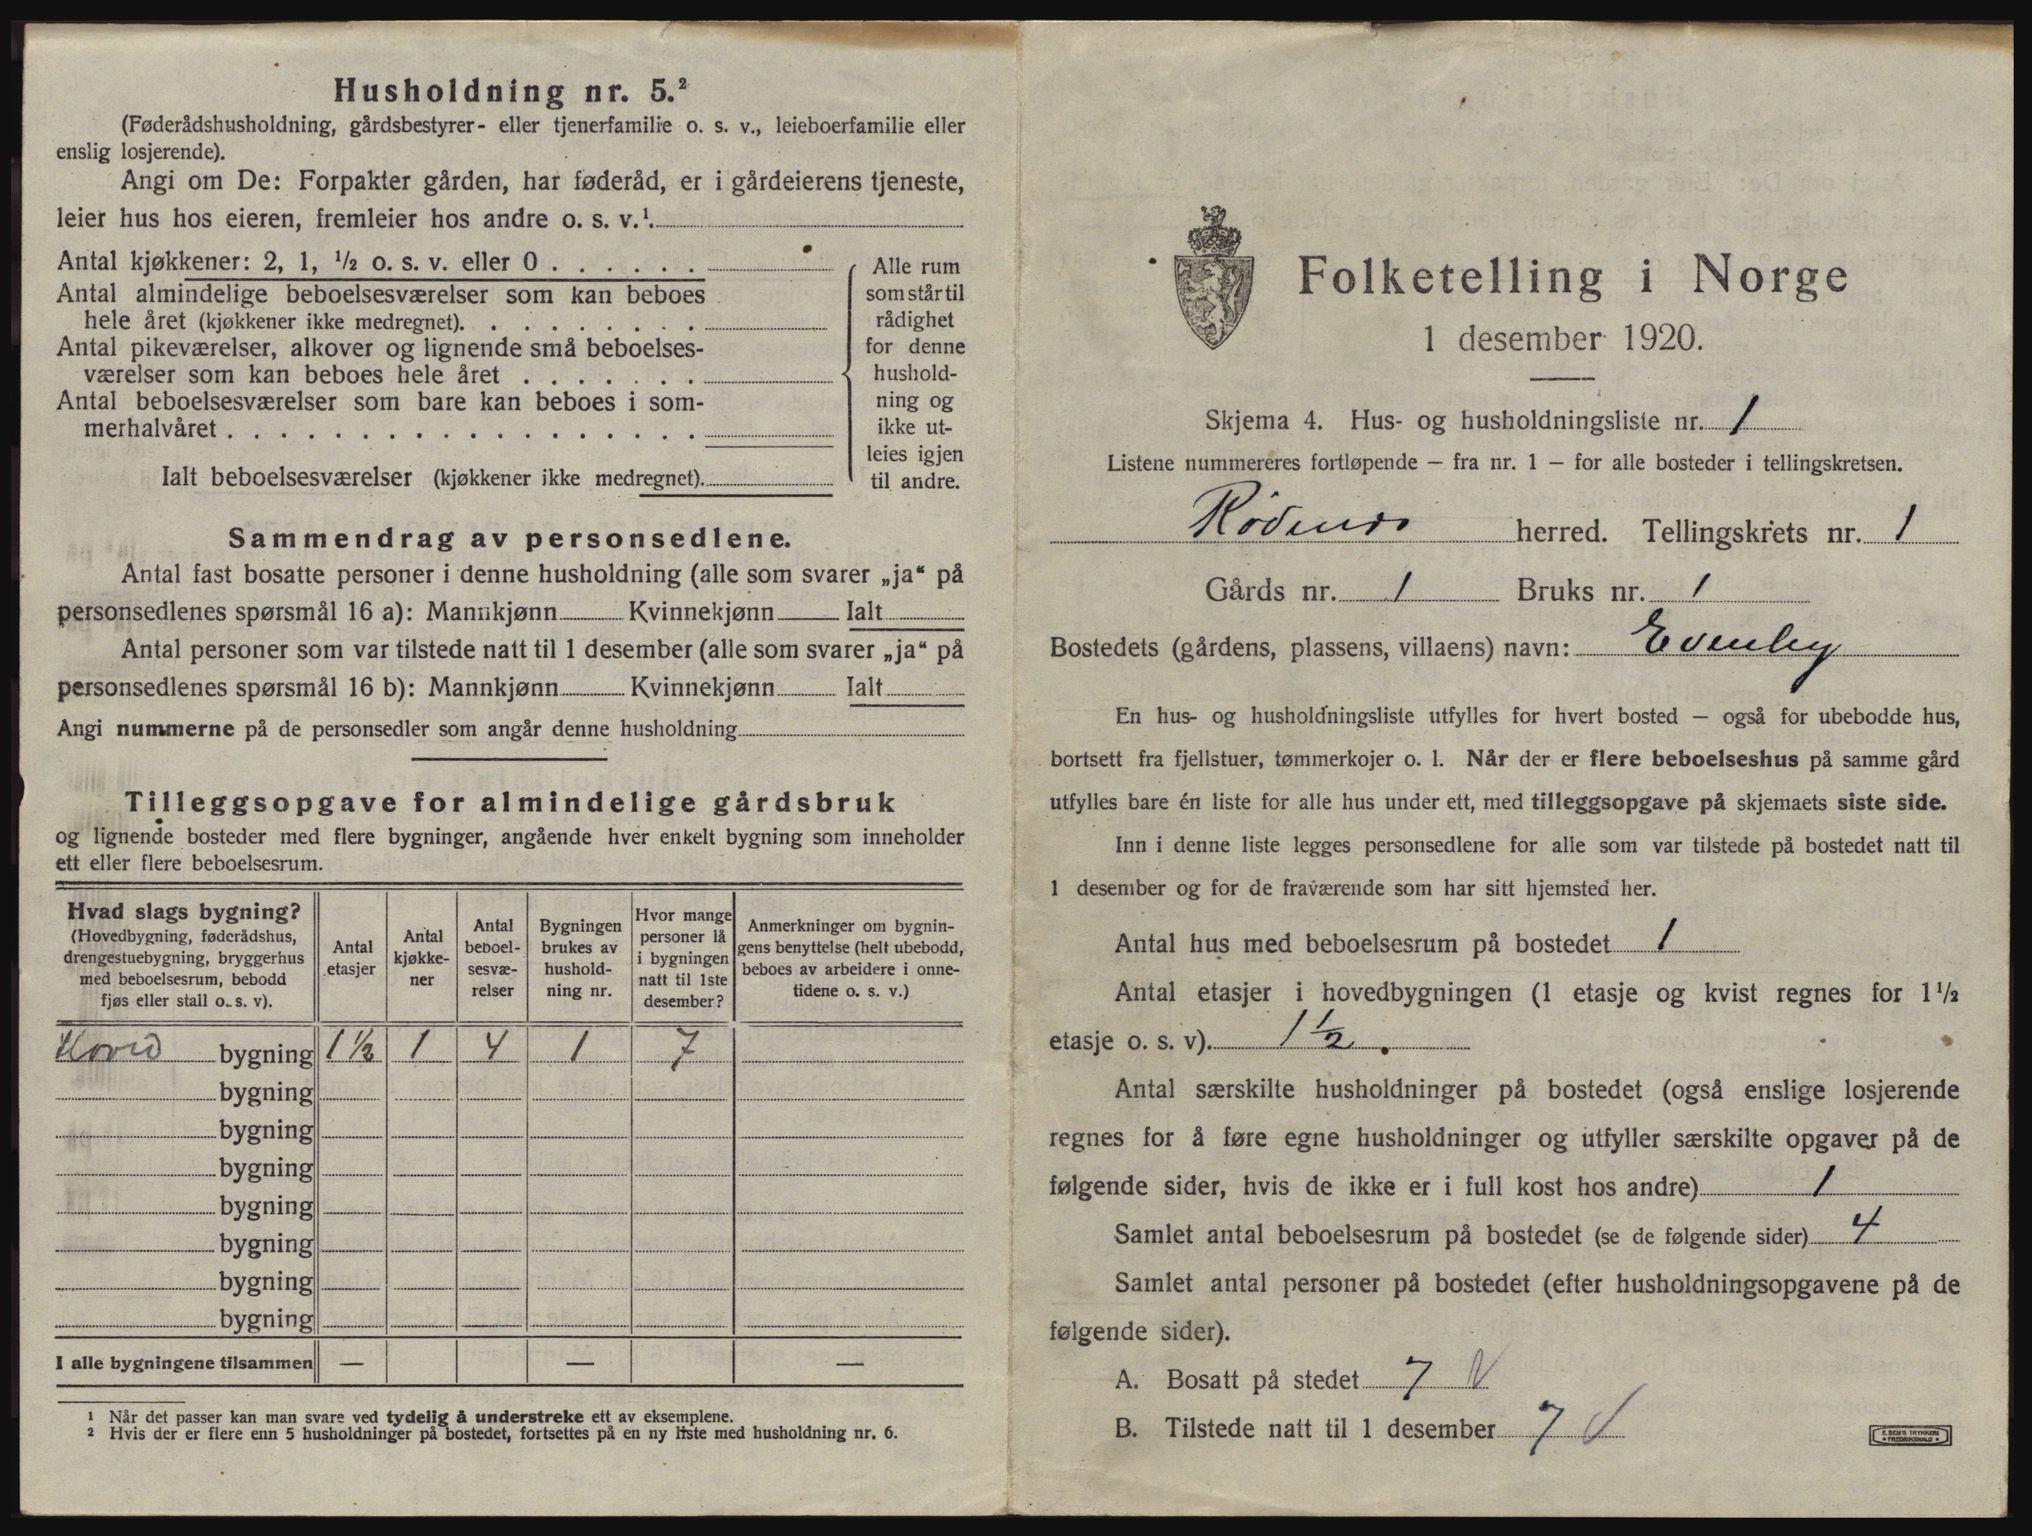 Husholdning nr. 5.²
(Føderådshusholdning, gårdsbestyrer- eller tjenerfamilie o. s. v., leieboerfamilie eller
enslig losjerende).
Angi om De: Forpakter gården, har føderåd, er i gårdeierens tjeneste,
leier hus hos eieren, fremleier hos andre o. s. v.¹
Antal kjøkkener: 2, 1, ½ o. s. v. eller 0
Antal almindelige beboelsesværelser som kan beboes
hele året (kjøkkener ikke medregnet).
Antal pikeværelser, alkover og lignende små beboelses-
værelser som kan beboes hele året
Antal beboelsesværelser som bare kan beboes i som-
merhalvåret
Ialt beboelsesværelser (kjøkkener ikke medregnet).
Alle rum
som står til
rådighet
for denne
hushold-
ning og
ikke ut-
leies igjen
til andre.
Sammendrag av personsedlene.
Antal fast bosatte personer i denne husholdning (alle som svarer „ja“ på
personsedlenes spørsmål 16 a): Mannkjønn Kvinnekjønn Ialt
Antal personer som var tilstede natt til 1 desember (alle som svarer „ja“ på
personsedlenes spørsmål 16 b): Mannkjønn Kvinnekjønn Ialt
Angi nummerne på de personsedler som angår denne husholdning
Tilleggsopgave for almindelige gårdsbruk
og lignende bosteder med flere bygninger, angående hver enkelt bygning som inneholder
ett eller flere beboelsesrum.
Hvad slags bygning?
(Hovedbygning, føderådshus,
drengestuebygning, bryggerhus
med beboelsesrum, bebodd
fjøs eller stall o. s. v).
Antal
etasjer
Antal
kjøkke-
ner
Antal
beboel-
sesvæ-
relser
Bygningen
brukes av
hushold-
ning nr.
Hvor mange
personer lå
i bygningen
natt til 1ste
desember?
Anmerkninger om bygnin-
gens benyttelse (helt ubebodd,
beboes av arbeidere i onne-
tidene o. s. v.)
Hoved bygning 1½ 1 4 1 7
bygning
bygning
bygning
bygning
bygning
bygning
bygning
I alle bygningene tilsammen — — —
¹ Når det passer kan man svare ved tydelig å understreke ett av eksemplene.
² Hvis der er flere enn 5 husholdninger på bostedet, fortsettes på en ny liste med husholdning nr. 6.
Folketelling i Norge
1 desember 1920.
Skjema 4. Hus- og husholdningsliste nr. 1
Listene nummereres fortløpende – fra nr. 1 – for alle bosteder i tellingskretsen.
Rødenes herred. Tellingskrets nr. 1
Gårds nr. 1 Bruks nr. 1
Bostedets (gårdens, plassens, villaens) navn: Evenby
En hus- og husholdningsliste utfylles for hvert bosted – også for ubebodde hus,
bortsett fra fjellstuer, tømmerkojer o. l. Når der er flere beboelseshus på samme gård
utfylles bare én liste for alle hus under ett, med tilleggsopgave på skjemaets siste side.
Inn i denne liste legges personsedlene for alle som var tilstede på bostedet natt til
1 desember og for de fraværende som har sitt hjemsted her.
Antal hus med beboelsesrum på bostedet 1
Antal etasjer i hovedbygningen (1 etasje og kvist regnes for 1½
etasje o. s. v). 1½
Antal særskilte husholdninger på bostedet (også enslige losjerende
regnes for å føre egne husholdninger og utfyller særskilte opgaver på de
følgende sider, hvis de ikke er i full kost hos andre) 1
Samlet antal beboelsesrum på bostedet (se de følgende sider) 4
Samlet antal personer på bostedet (efter husholdningsopgavene på de
følgende sider).
A. Bosatt på stedet 7
B. Tilstede natt til 1 desember 7
E. SEM'S TRYKKERI
FREDRIKSHALD